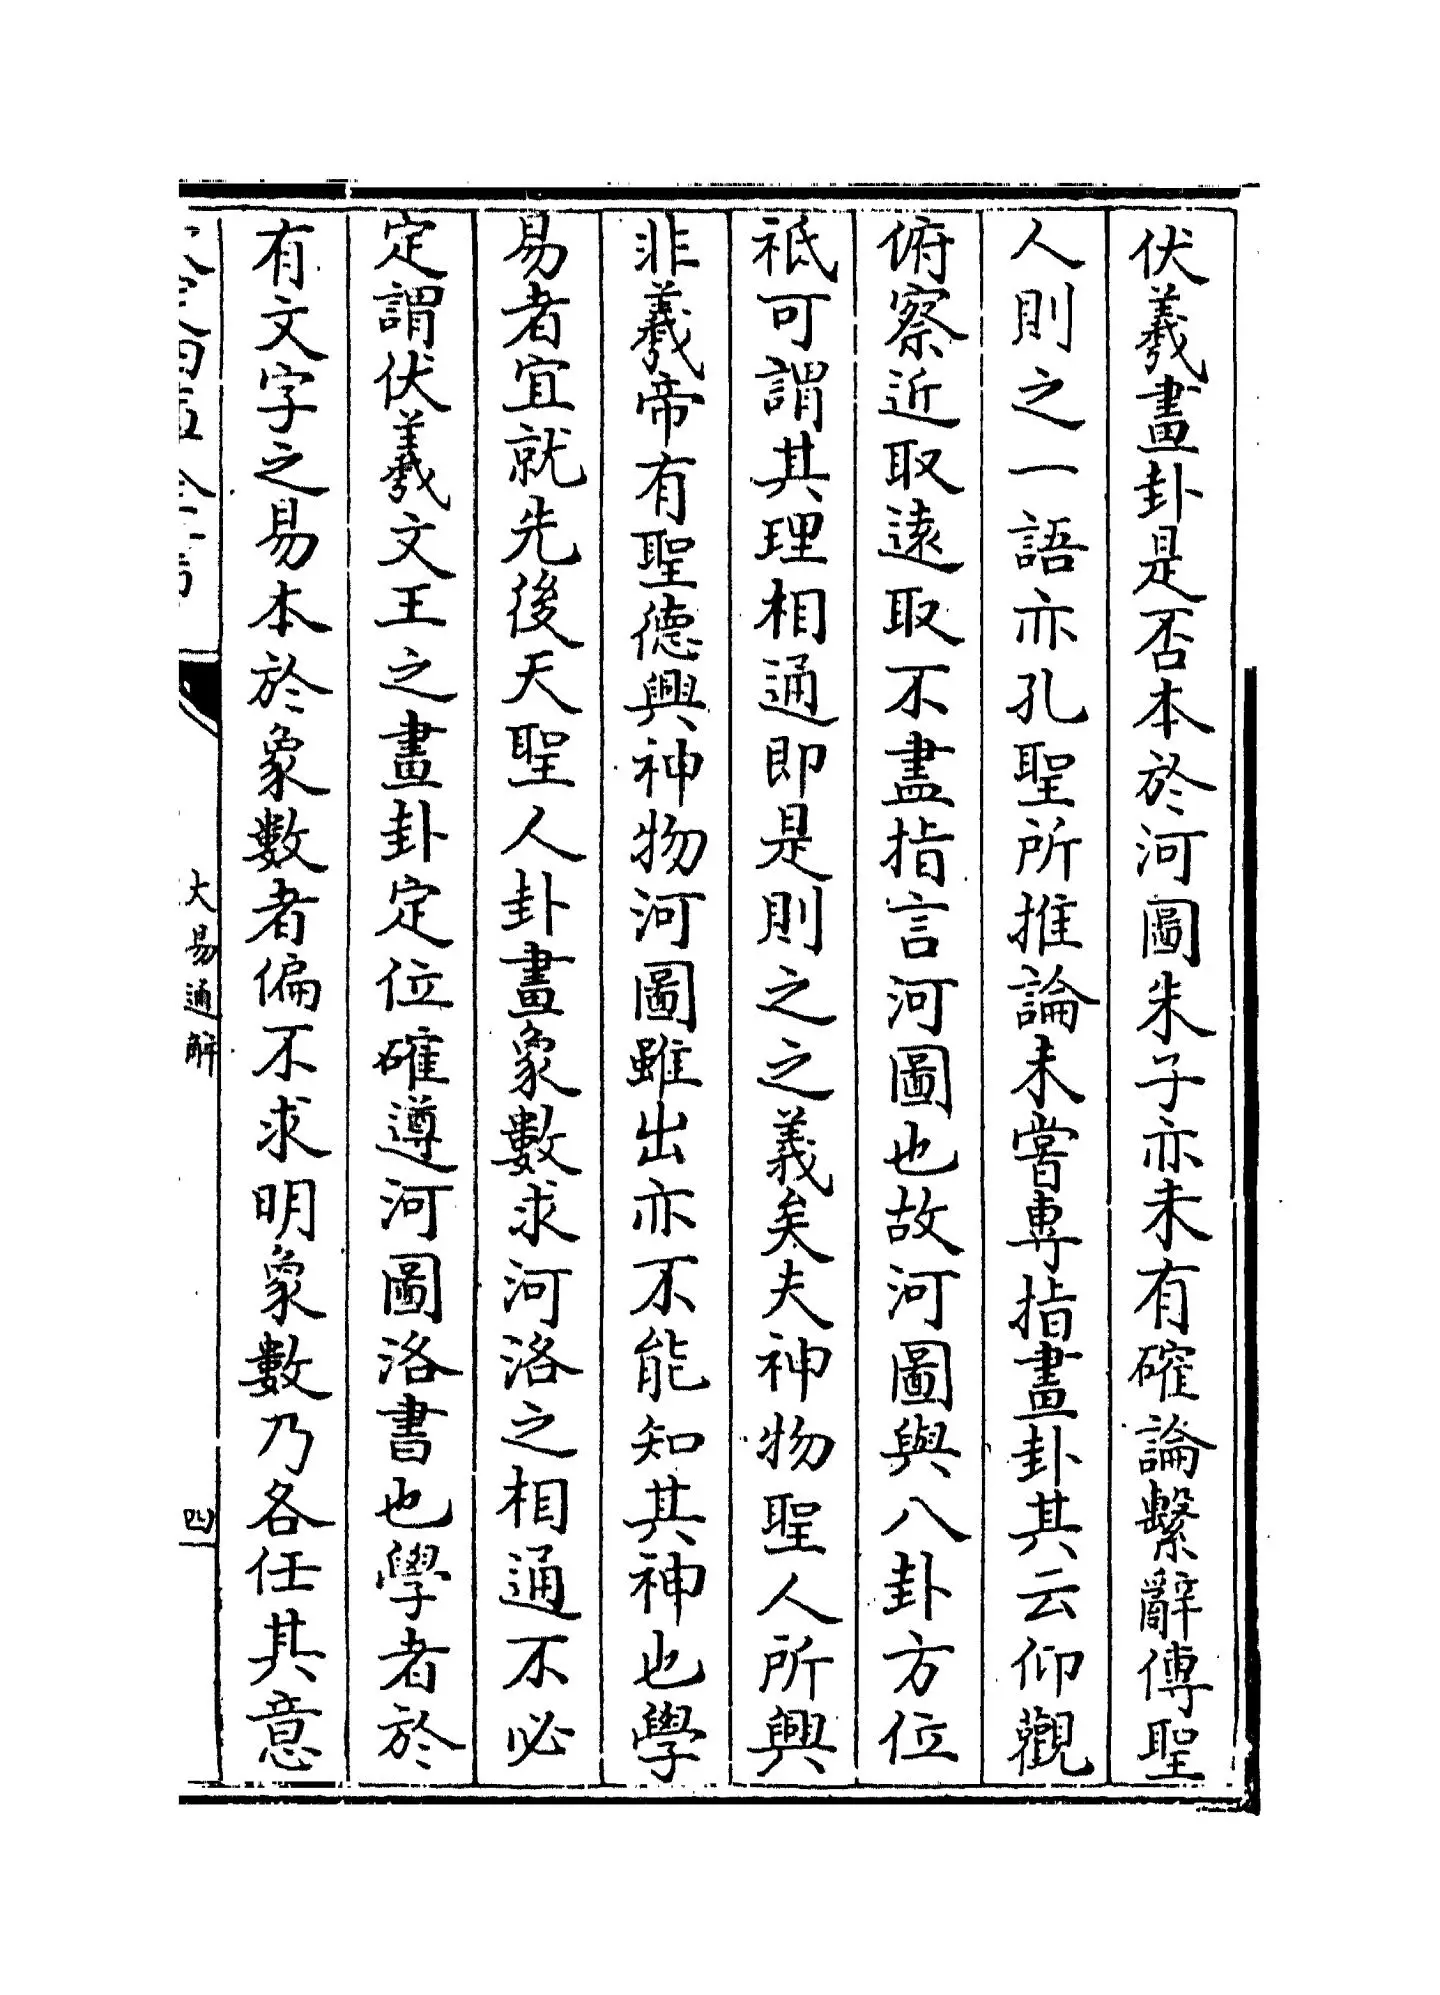 伏羲畫卦是否本於河圖朱子亦未有確論繫辭傳聖
人則之一語亦孔聖所推論未嘗專指畫卦其云仰觀
俯察近取遠取不盡指言河圖也故河圖與八卦方位
祗可謂其理相通即是則之之義矣夫神物聖人所興
非羲帝有聖德興神物河圖雖出亦不能知其神也學
易者宜就先後天聖人卦畫象數求河洛之相通不必
定謂伏羲文王之畫卦定位確遵河圖洛書也學者於
有文字之易本於象數者偏不求明象數乃各任其意
大易通解
四